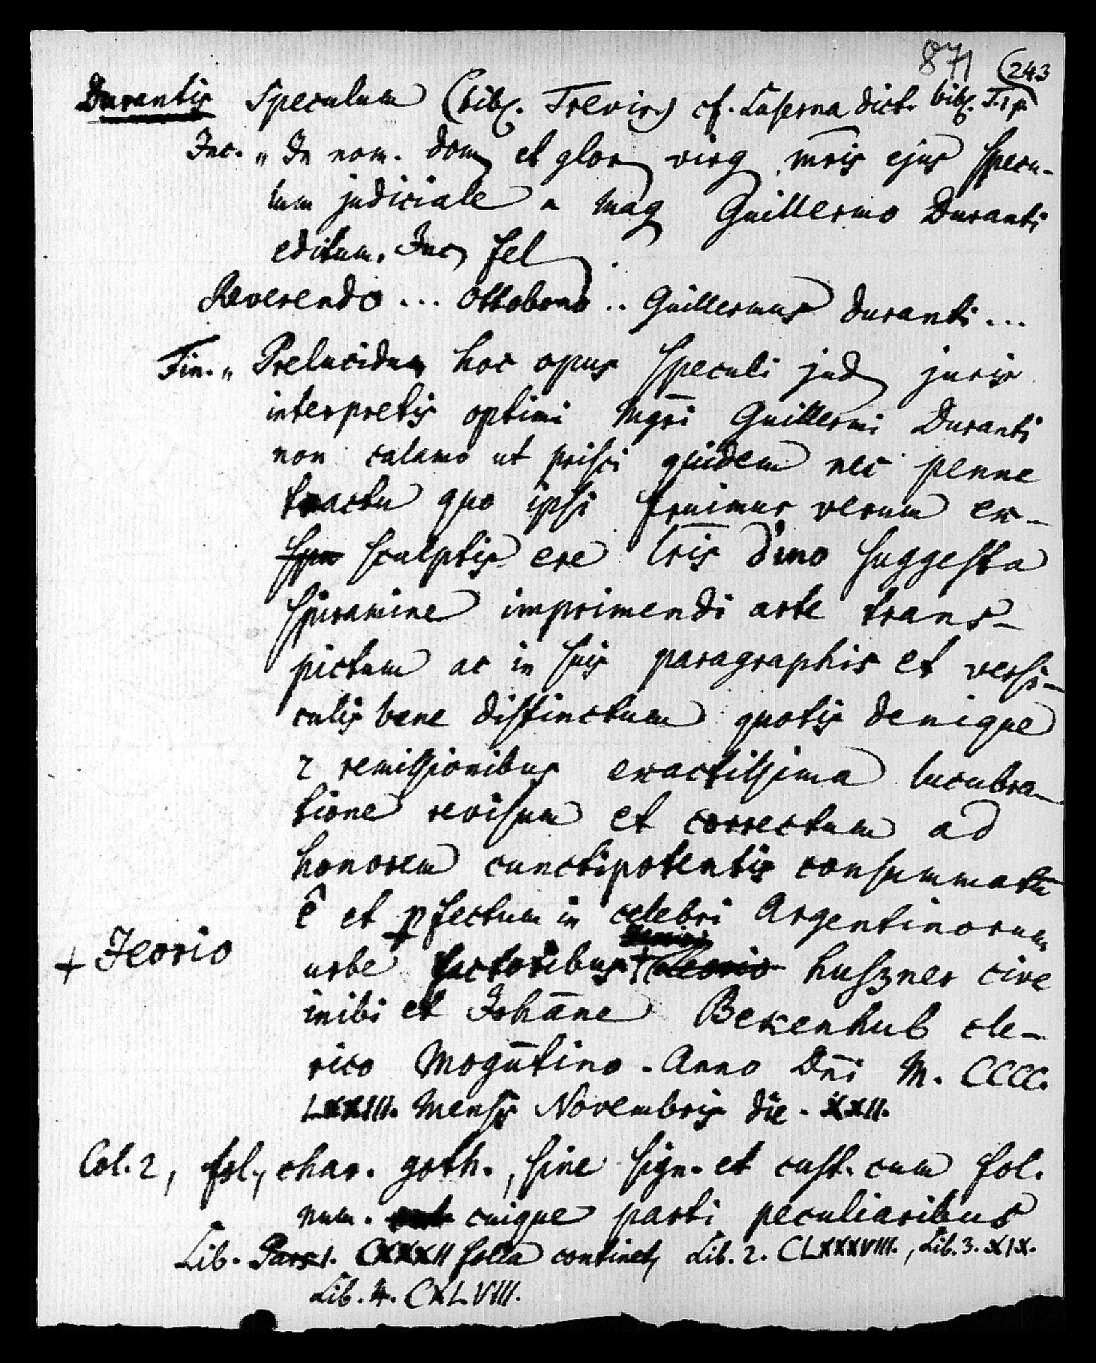 871 (243
Durantis Speculum (bibl. Trevir.) cf. Laserna dict. bibl. T. 1 p
Inc. „ In nom. dom et glor virg mris ejus specu-
lum judiciale a mag Guillermo Duranti
editum. Inc fel
Reverendo ... Ottobono .. Guillermus duranti ...
Fin. „ Prelucidum hoc opus speculi jud juris
interpretis optimi mgri Guillermi Duranti
non calamo ut prisci quidem nec penne
tractu quo ipsi fruimur verum ex-
sculptis ere lris dmo suggesta
spiramine imprimendi arte trans-
pictum ac in suis paragraphis et versi-
culis bene distinctum quotis denique
z remissionibus exactissima lucubra-
tione revisum et correctum ad
honorem cunctipotentis consummatū
ē et pfectum in celebri Argentinorum
+ Jeorio
urbe factoribus + huszner cive
inibi et Johāne Bekenhub cle-
rico Mogūtino. Anno Dn̄i M. CCCC.
LXXIII. Mensis Novembris die. XXII.
Col. 2, fol., char. goth., sine sign. et cust. cum fol.
num. cuique parti peculiaribus
Lib. 1. CXXXII folia continet, Lib. 2. CLXXXVIII., Lib. 3. XIX.
Lib. 4. CXLVIII.